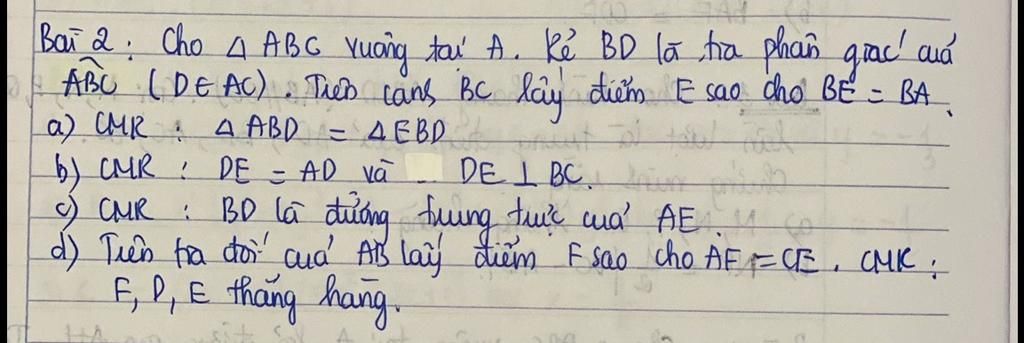 Bài 2: Cho △ ABC vuông tại A. Kẻ BD là tia phân giác của
ABC (D∈AC). Trên cạnh BC lấy điểm E sao cho BE = BA.
a) CMR : △ ABD = △EBD
b) CMR : DE = AD và DE ⊥ BC.
c) CMR : BD là đường trung trực của AE.
d) Trên tia đối của AB lấy điểm F sao cho AF = CE. CMR :
F, D, E thẳng hàng.